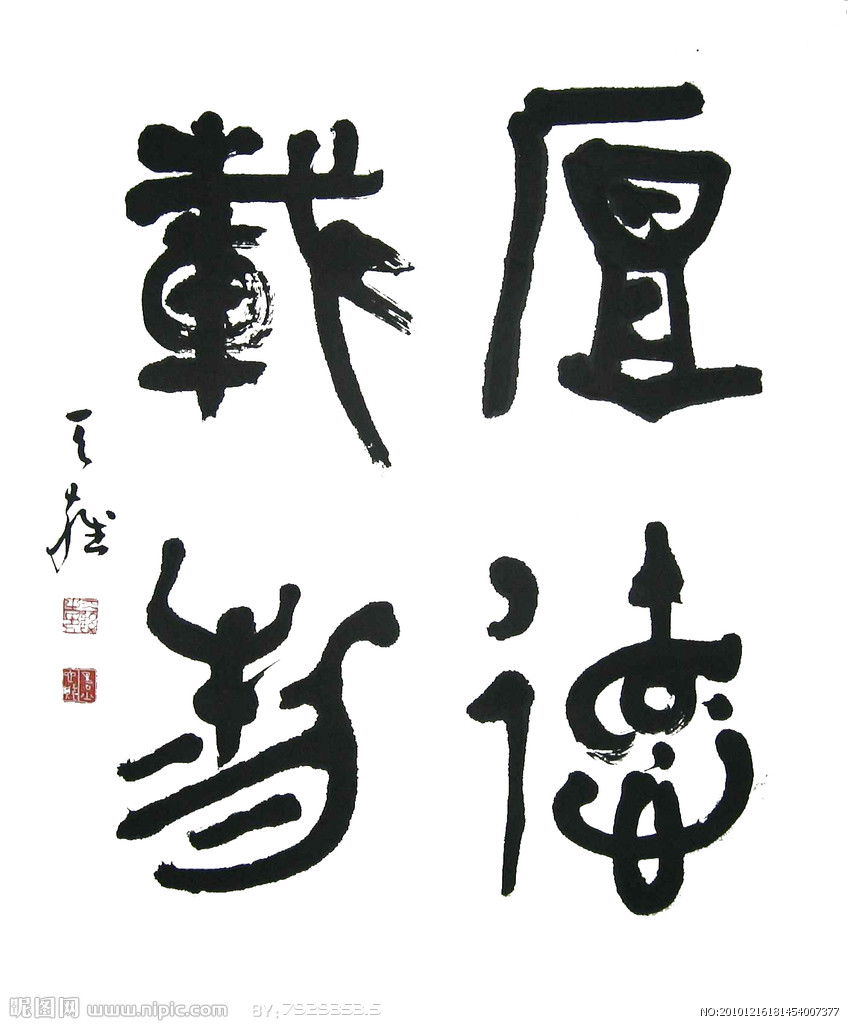 厚德
載物
昵图网 www.nipic.com BY:7929353.5
NO:20101216181454007377